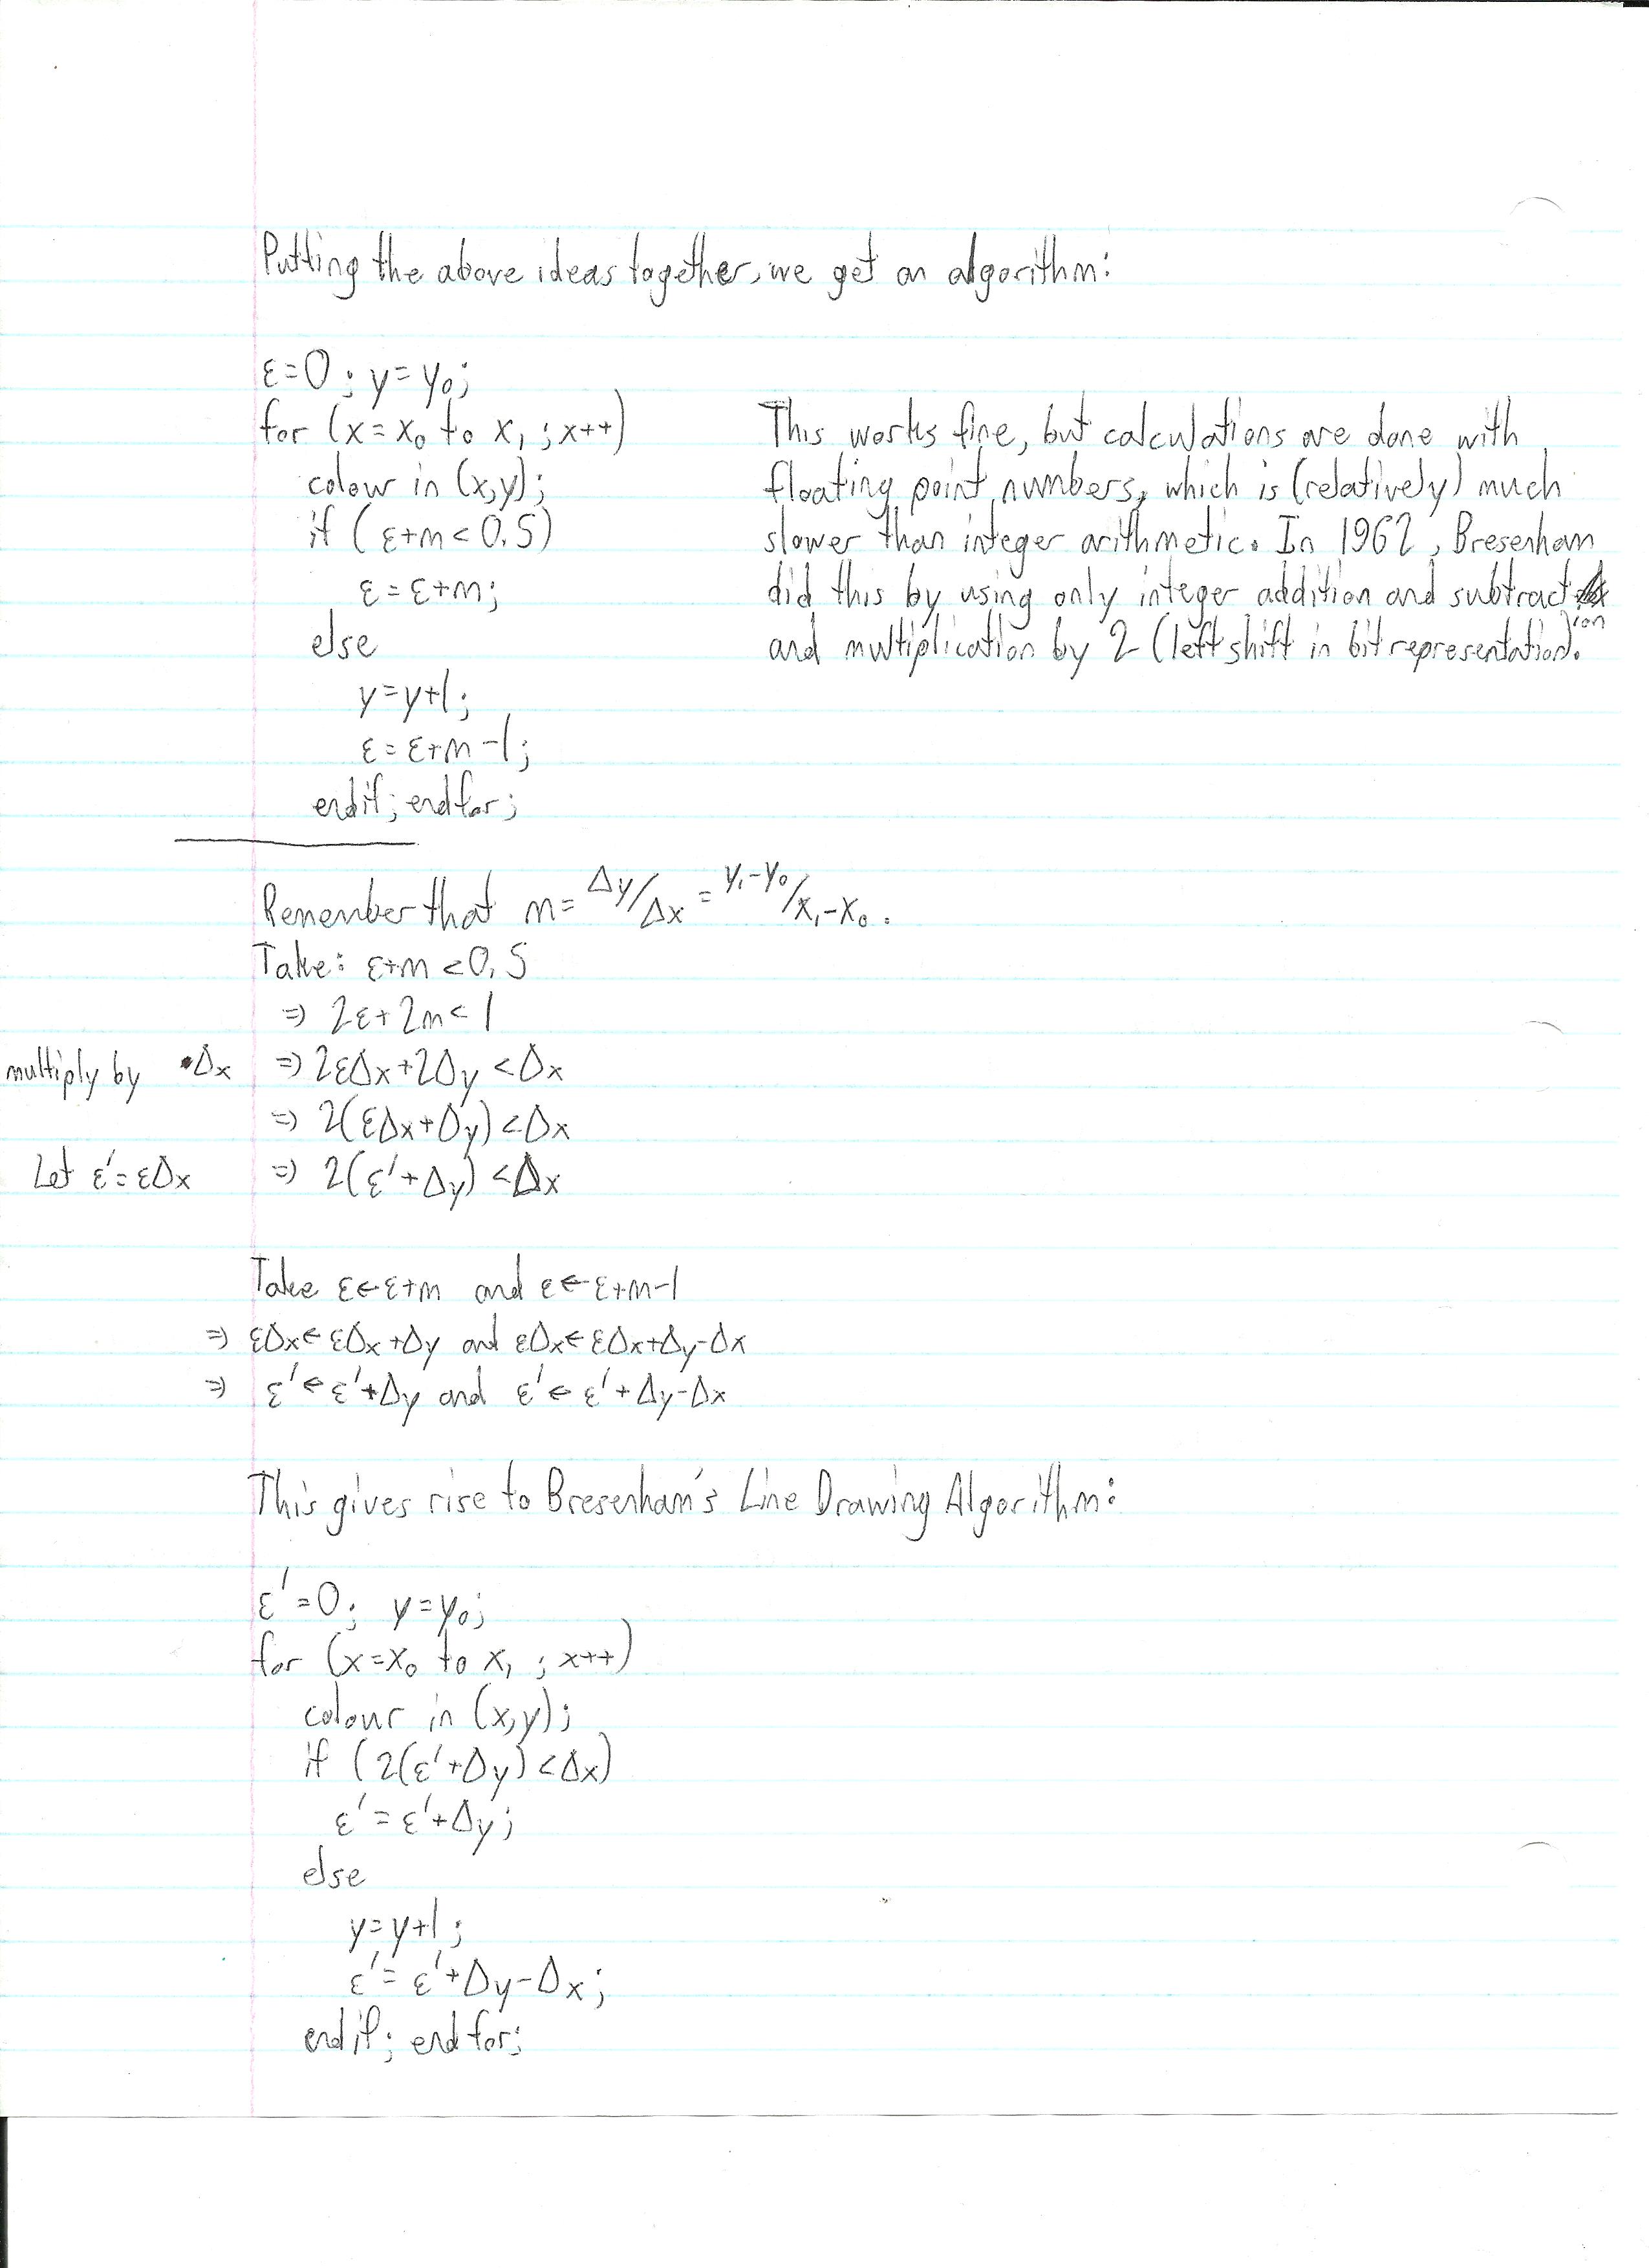 Putting the above ideas together, we get an algorithm:
ε=0; y=y₀;
for (x=x₀ to x₁; x++)
colour in (x,y);
if (ε+m<0.5)
ε=ε+m;
else
y=y+1;
ε=ε+m-1;
endif; endfor;
This works fine, but calculations are done with
floating point numbers, which is (relatively) much
slower than integer arithmetic. In 1962, Bresenham
did this by using only integer addition and subtraction
and multiplication by 2 (left shift in bit representation).
Remember that m=Δy/Δx = y₁-y₀/x₁-x₀.
Take: ε+m<0.5
⇒ 2ε+2m<1
multiply by •Δx ⇒ 2εΔx+2Δy<Δx
⇒ 2(εΔx+Δy)<Δx
Let ε'=εΔx ⇒ 2(ε'+Δy)<Δx
Take ε←ε+m and ε←ε+m-1
⇒ εΔx←εΔx+Δy and εΔx←εΔx+Δy-Δx
⇒ ε'←ε'+Δy and ε'←ε'+Δy-Δx
This gives rise to Bresenham's Line Drawing Algorithm:
ε'=0; y=y₀;
for (x=x₀ to x₁; x++)
colour in (x,y);
if (2(ε'+Δy)<Δx)
ε'=ε'+Δy;
else
y=y+1;
ε'=ε'+Δy-Δx;
endif; endfor;